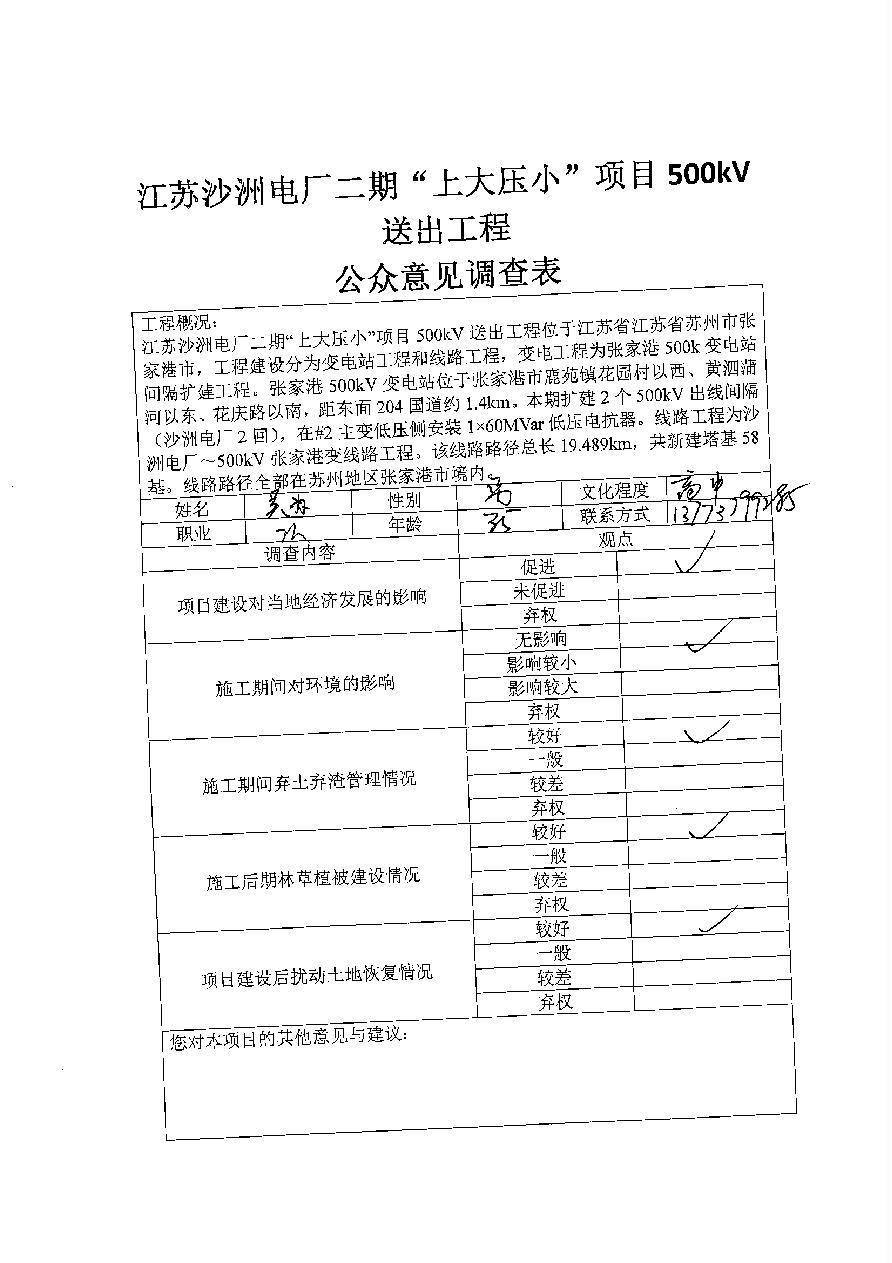 江苏沙洲电厂二期“上大压小”项目 500kV
送出工程
公众意见调查表
工程概况：
江苏沙洲电厂二期“上大压小”项目 500kV 送出工程位于江苏省江苏省苏州市张
家港市，工程建设分为变电站工程和线路工程，变电工程为张家港 500k 变电站
间隔扩建工程。张家港 500kV 变电站位于张家港市鹿苑镇花园村以西、黄泗浦
河以东、花庆路以南，距东面 204 国道约 1.4km。本期扩建 2 个 500kV 出线间隔
（沙洲电厂 2 回），在#2 主变低压侧安装 1×60MVar 低压电抗器。线路工程为沙
洲电厂～500kV 张家港变线路工程。该线路路径总长 19.489km，共新建塔基 58
基。线路路径全部在苏州地区张家港市境内。
姓名 性别 文化程度 高中
职业 年龄 35 联系方式
调查内容 观点
项目建设对当地经济发展的影响
促进 ✓
未促进
弃权
施工期间对环境的影响
无影响 ✓
影响较小
影响较大
弃权
施工期间弃土弃渣管理情况
较好 ✓
一般
较差
弃权
施工后期林草植被建设情况
较好 ✓
一般
较差
弃权
项目建设后扰动土地恢复情况
较好 ✓
一般
较差
弃权
您对本项目的其他意见与建议：